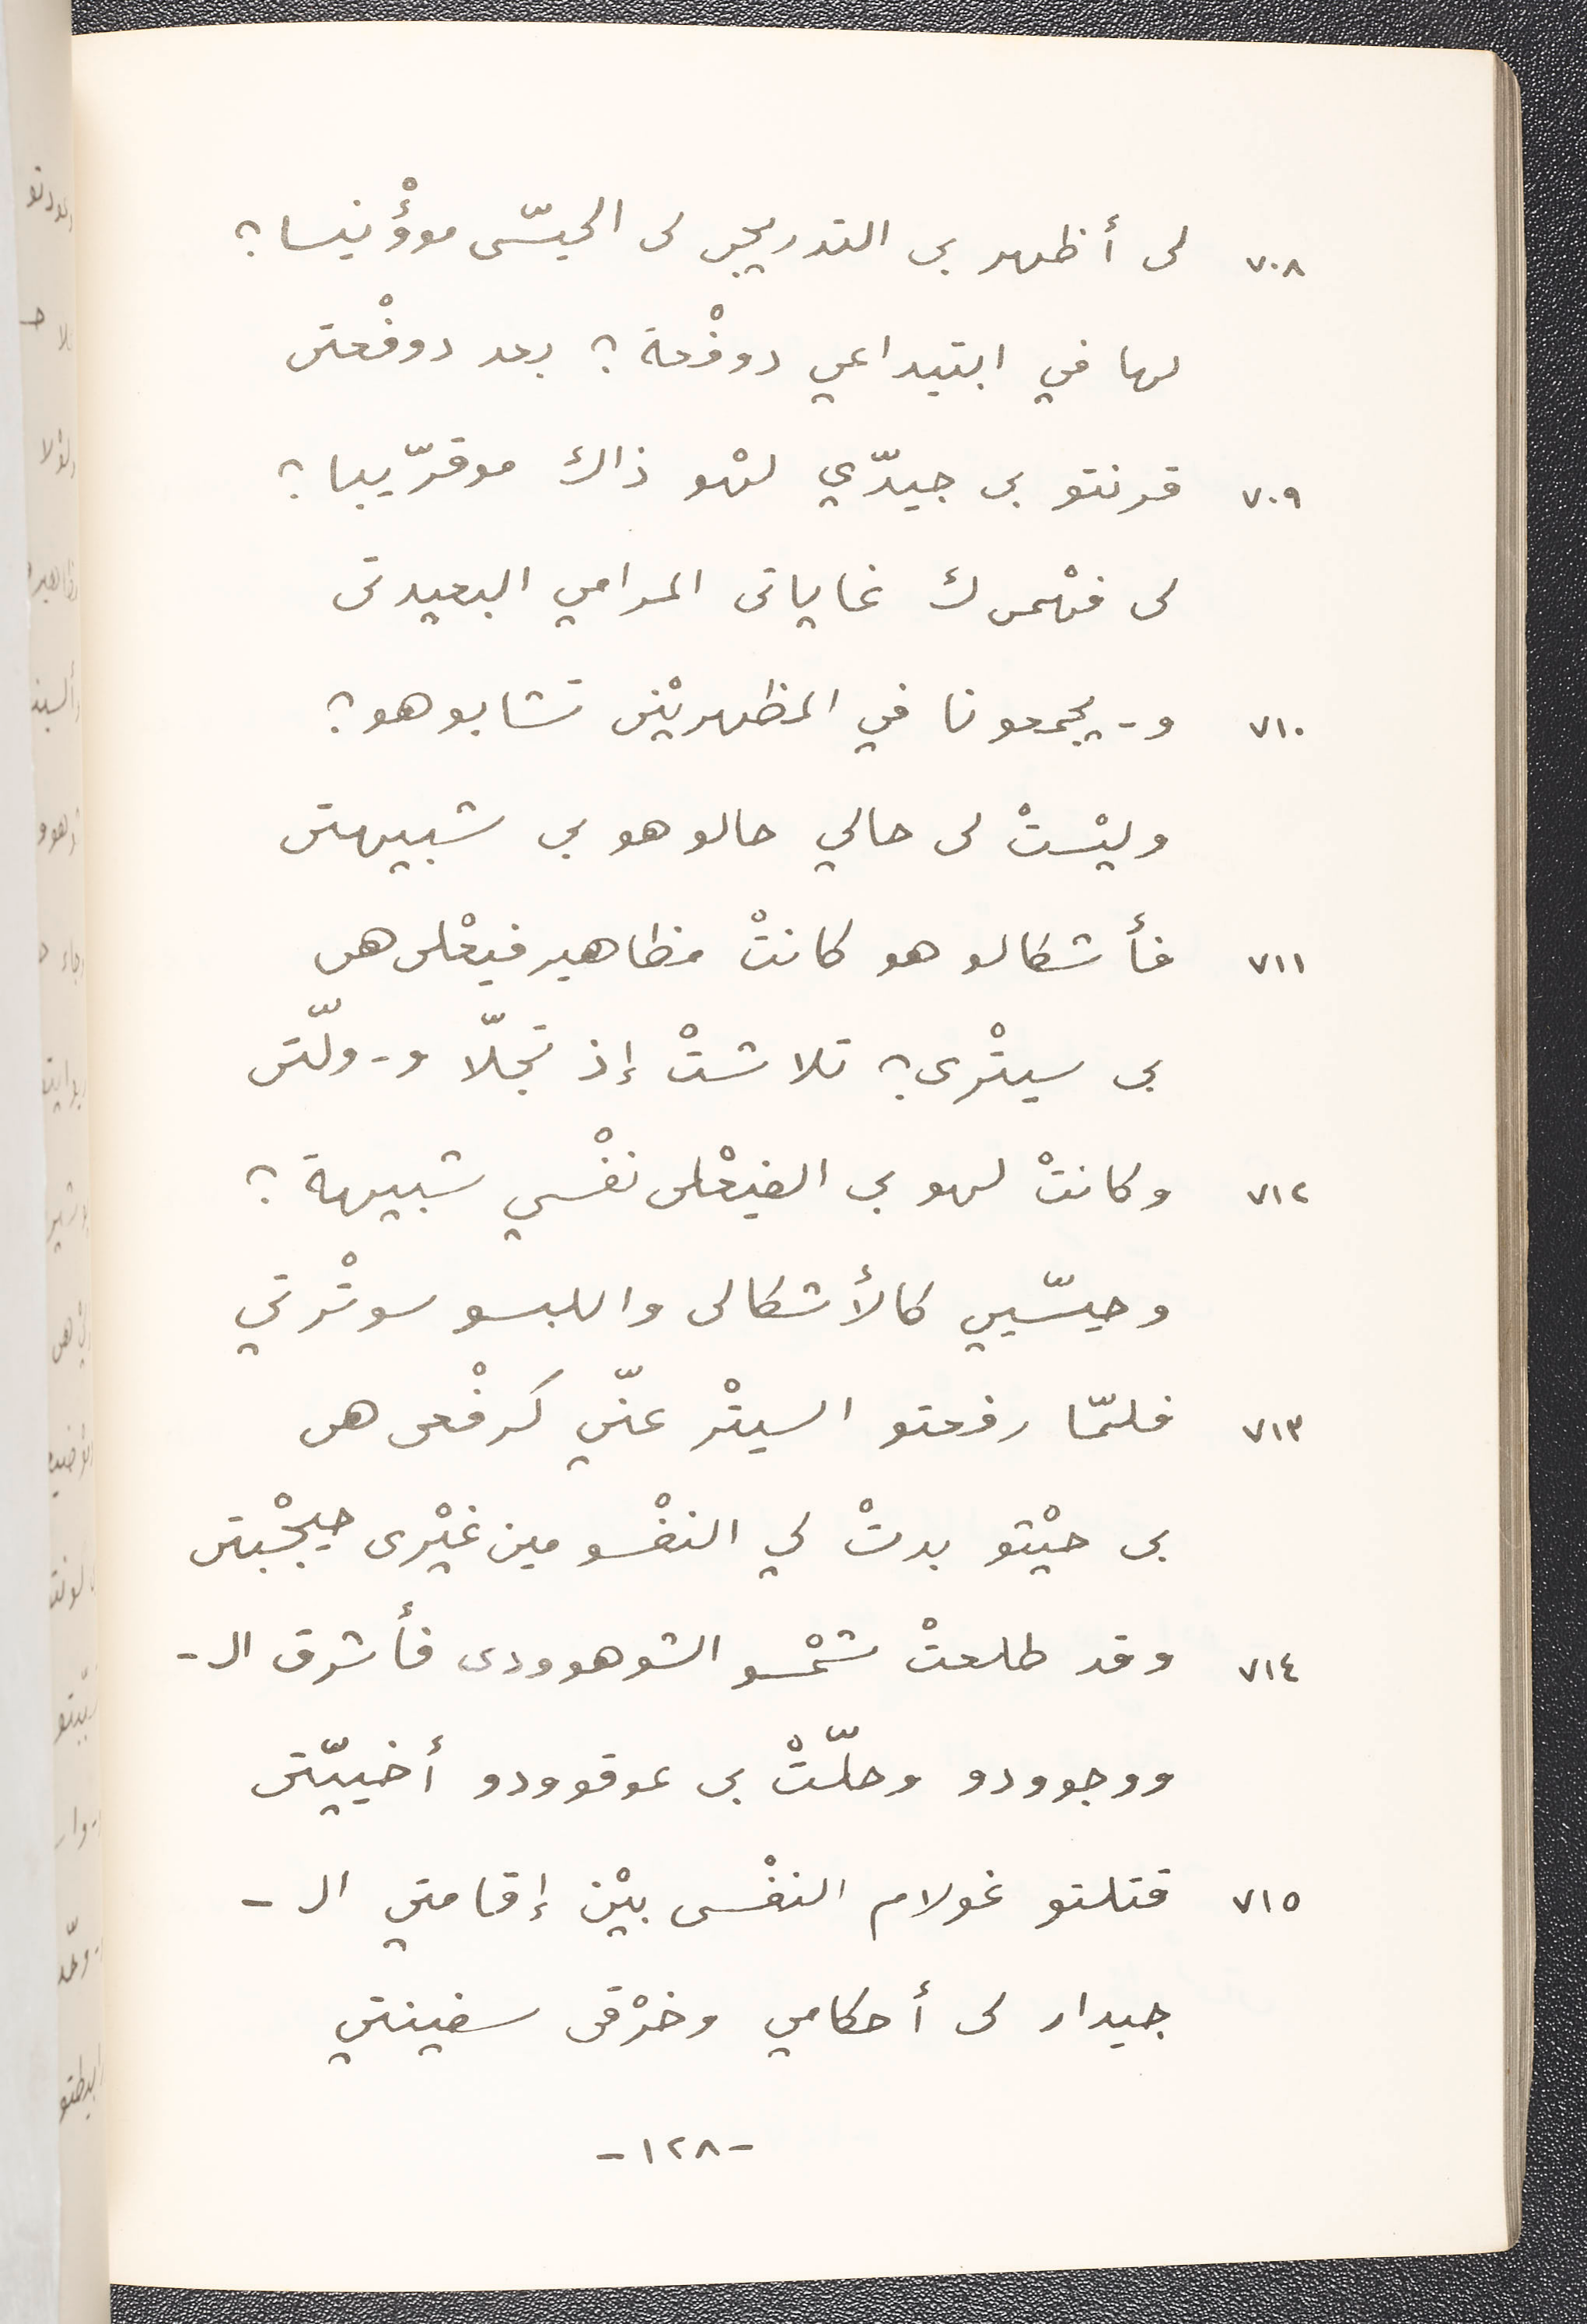 ٧٠٨ لى أظهر بى التدريجى لى الحيسّى موؤْنيسا؟
لها في ابتيداعي دوفْعة؟ بعد دوفْعتى
٧٠٩ قرنتو بى جيدّي لهْو ذاك موقرّيبا؟
لى فهْمى ك غاياتى المرامي البعيدتى
٧١٠ و-يجمعونا في المظهريْنى تشابوهو؟
وليْستْ لى حالي حالوهو بى شبيهتى
٧١١ فأشكالوهو كانتْ مظاهير فيعْلى هى
بى سيتْرى؟ تلاشتْ إذ تجلّا و-ولّتى
٧١٢ وكانتْ لهو بى الفيعْلى نفْسي شبيهة؟
وحيسّيي كالأشكالى واللبسو سوتْرتي
٧١٣ فلمّا رفعتو السيتْر عنّي كرفْعى هى
بى حيْتو بدتْ لي النفْسو مين غيْرى حيجْبتى
٧١٤ وقد طلعتْ شمْسو الشوهوودى فأشرق الـ-
ووجوودو وحلّتْ بى عوقوودو أخييّتى
٧١٥ قتلتو غولام النفْسى بيْن إقامتي الـ-
جيدار لى أحكامي وخرْقى سفينتي
-١٢٨-